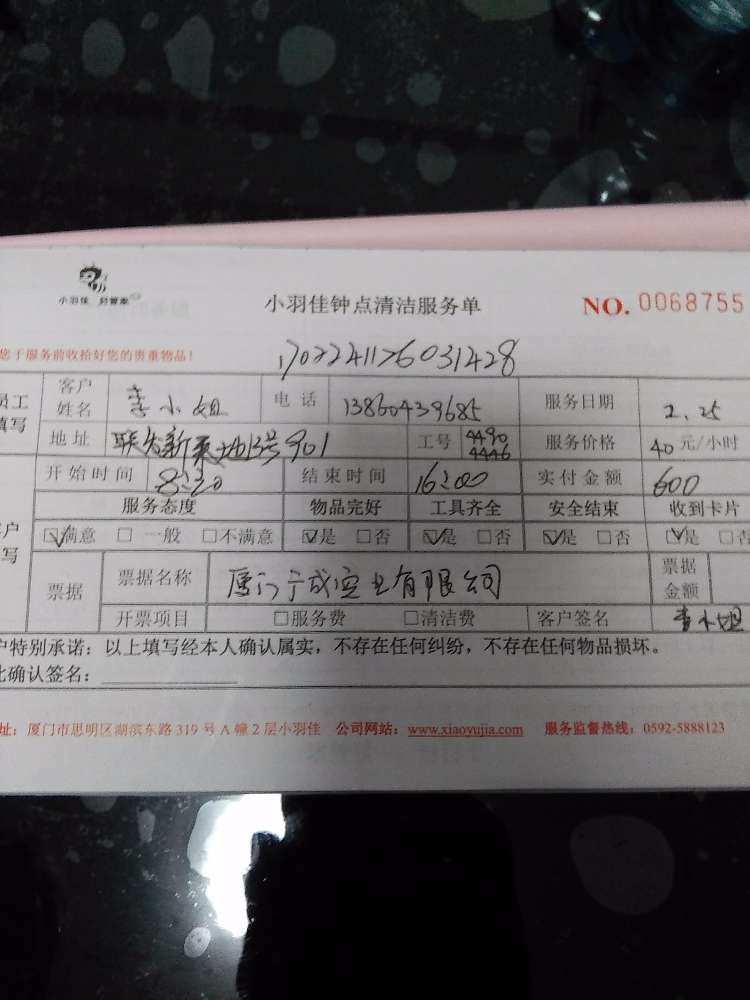 小羽佳 好管家
小羽佳钟点清洁服务单
NO. 0068755
您于服务前收拾好您的贵重物品!
1702241126031428
员工填写
客户姓名 李小姐 电话 13860439685 服务日期 2.25
地址 联发新天地13号901 工号 4490 4446 服务价格 40元/小时
开始时间 8:20 结束时间 16:00 实付金额 600
服务态度 物品完好 工具齐全 安全结束 收到卡片
☑满意 □一般 □不满意 ☑是 □否 ☑是 □否 ☑是 □否 ☑是 □否
票据 票据名称 厦门宁成实业有限公司 票据金额
开票项目 □服务费 □清洁费 客户签名 李小姐
户特别承诺:以上填写经本人确认属实,不存在任何纠纷,不存在任何物品损坏。
此确认签名:
址:厦门市思明区湖滨东路319号A幢2层小羽佳 公司网站:www.xiaoyujia.com 服务监督热线:0592-5888123